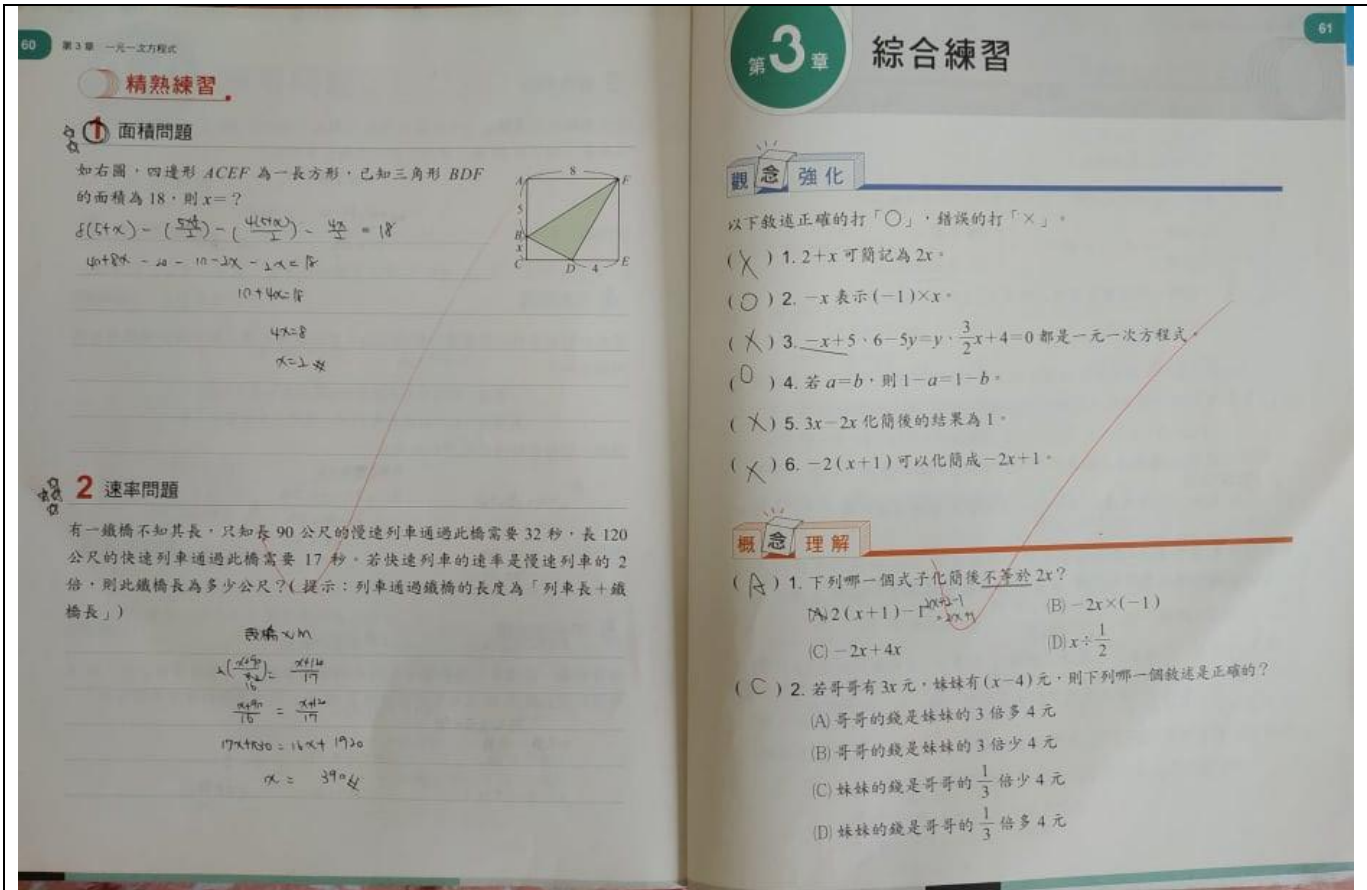 60 第3章 一元一次方程式
精熟練習
1 面積問題
如右圖，四邊形 ACEF 為一長方形，已知三角形 BDF
的面積為 18，則 x=？
A 8 F
5
B
x
C D 4 E
8(5+x) - (5×8/2) - (4(5+x)/2) - 4x/2 = 18
40+8x - 20 - 10 - 2x - 2x = 18
10+4x=18
4x=8
x=2
2 速率問題
有一鐵橋不知其長，只知長 90 公尺的慢速列車通過此橋需要 32 秒，長 120
公尺的快速列車通過此橋需要 17 秒。若快速列車的速率是慢速列車的 2
倍，則此鐵橋長為多少公尺？(提示：列車通過鐵橋的長度為「列車長＋鐵
橋長」)
設橋 x m
2(x+90/32)= x+120/17
16
x+90/16 = x+120/17
17x+1530 = 16x+ 1920
x = 390
61
第3章 綜合練習
觀念強化
以下敘述正確的打「○」，錯誤的打「×」。
(X) 1. 2+x 可簡記為 2x。
(O) 2. −x 表示(−1)×x。
(X) 3. −x+5、6−5y=y、3/2x+4=0 都是一元一次方程式。
(O) 4. 若 a=b，則 1−a=1−b。
(X) 5. 3x−2x 化簡後的結果為 1。
(X) 6. −2(x+1)可以化簡成−2x+1。
概念理解
(A) 1. 下列哪一個式子化簡後不等於 2x？
(A) 2(x+1)−1 2x+2-1 (B) −2x×(−1)
=2x+1
(C) −2x+4x (D) x÷1/2
(C) 2. 若哥哥有 3x 元，妹妹有(x−4)元，則下列哪一個敘述是正確的？
(A) 哥哥的錢是妹妹的 3 倍多 4 元
(B) 哥哥的錢是妹妹的 3 倍少 4 元
(C) 妹妹的錢是哥哥的 1/3 倍少 4 元
(D) 妹妹的錢是哥哥的 1/3 倍多 4 元